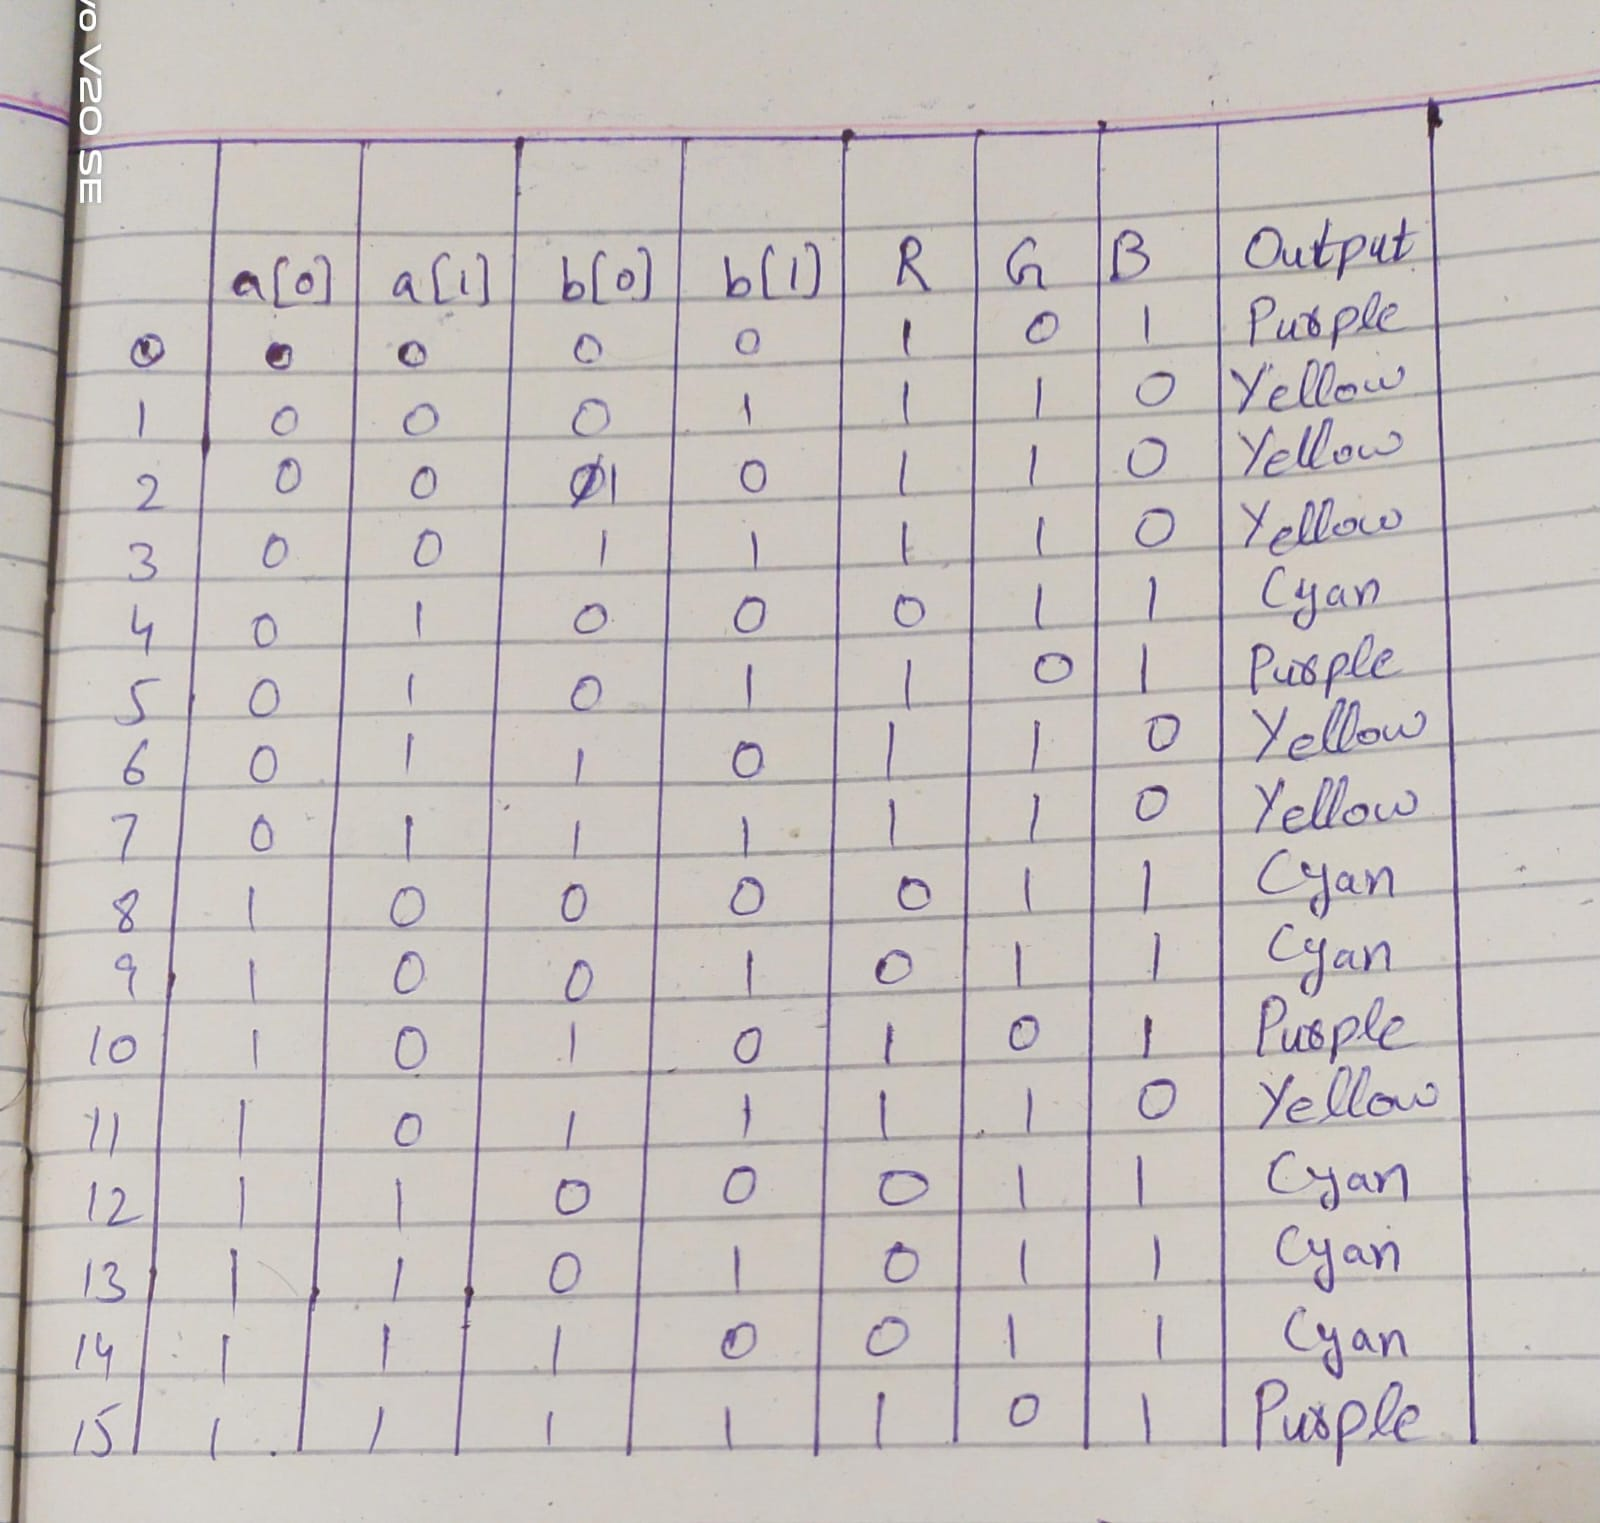 vo V20 SE
a[0] a[1] b[0] b[1] R G B Output
0 0 0 0 0 1 0 1 Purple
1 0 0 0 1 1 1 0 Yellow
2 0 0 1 0 1 1 0 Yellow
3 0 0 1 1 1 1 0 Yellow
4 0 1 0 0 0 1 1 Cyan
5 0 1 0 1 1 0 1 Purple
6 0 1 1 0 1 1 0 Yellow
7 0 1 1 1 1 1 0 Yellow
8 1 0 0 0 0 1 1 Cyan
9 1 0 0 1 0 1 1 Cyan
10 1 0 1 0 1 0 1 Purple
11 1 0 1 1 1 1 0 Yellow
12 1 1 0 0 0 1 1 Cyan
13 1 1 0 1 0 1 1 Cyan
14 1 1 1 0 0 1 1 Cyan
15 1 1 1 1 1 0 1 Purple